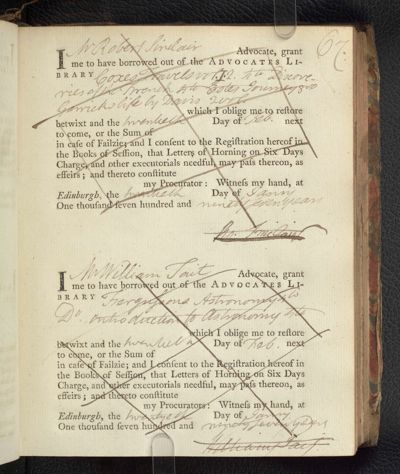 67.
I Mr Robert Sinclair Advocate, grant
me to have borrowed out of the ADVOCATES LI-
BRARY Coxes Travels vol. 1. 2. 4to Discove-
ries of the French 4to 8vo
Garricks life by Davis 2 vol
which I oblige me to restore
betwixt and the twentieth Day of Feb. next
to come, or the Sum of
in case of Failzie; and I consent to the Registration hereof in
the Books of Session, that Letters of Horning on Six Days
Charge, and other executorials needful, may pass thereon, as
effeirs; and thereto constitute
my Procurator: Witness my hand, at
Edinburgh, the twentieth Day of Janry
One thousand seven hundred and ninety seven years
Ro. Sinclair
I Mr William Tait Advocate, grant
me to have borrowed out of the ADVOCATES LI-
BRARY Fergussons Astronomy 4to
Do. introduction to Astronomy
which I oblige me to restore
betwixt and the twentieth Day of Feb. next
to come, or the Sum of
in case of Failzie; and I consent to the Registration hereof in
the Books of Session, that Letters of Horning on Six Days
Charge, and other executorials needful, may pass thereon, as
effeirs; and thereto constitute
my Procurators: Witness my hand, at
Edinburgh, the twentieth Day of Janry
One thousand seven hundred and ninety seven years
William Tait